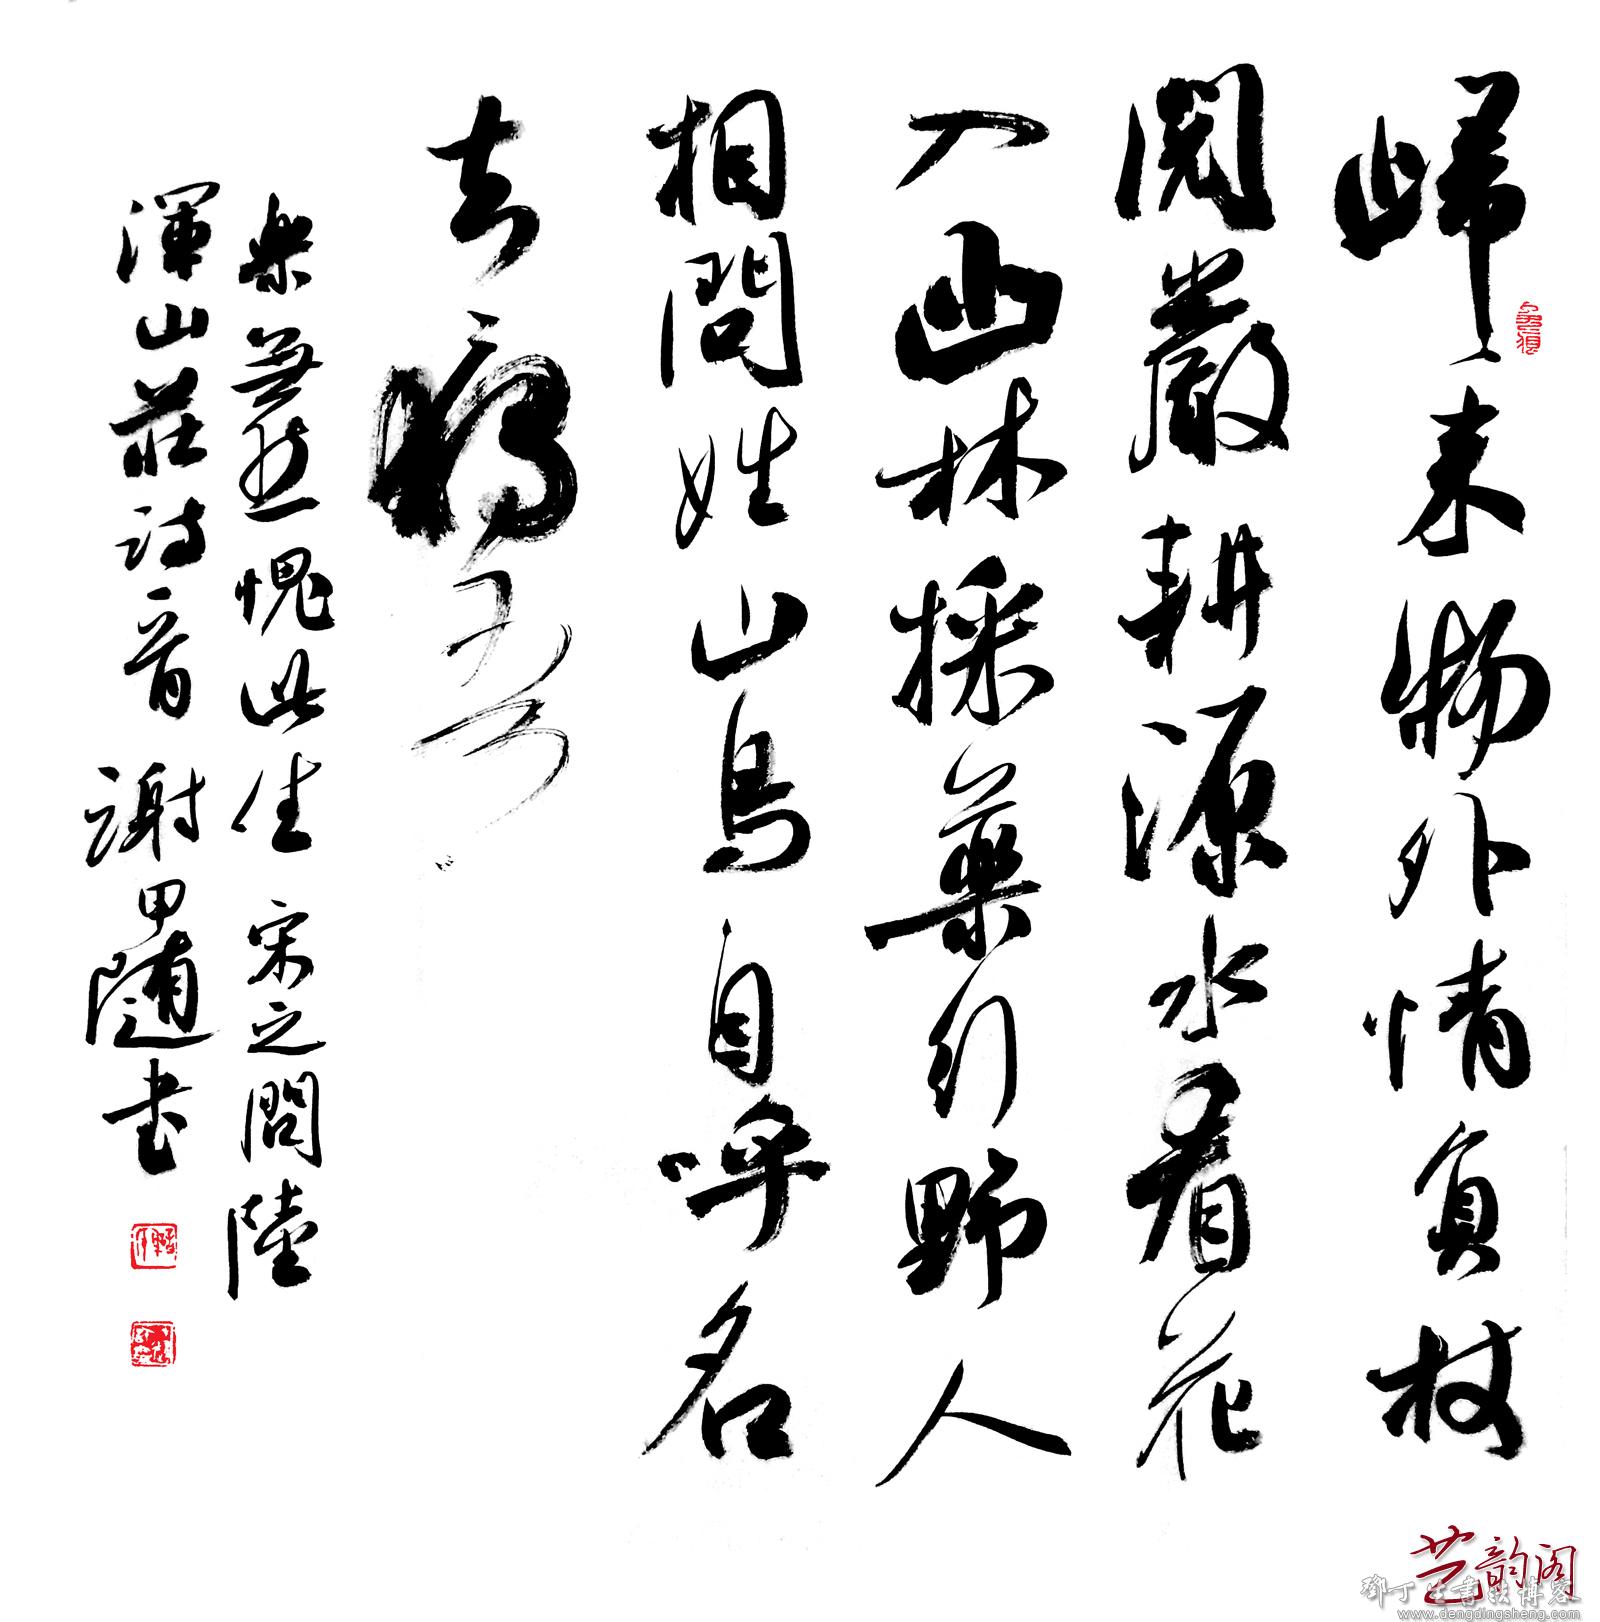 歸来物外情負杖
閱巖耕源水看花
入幽林採藥行野人
相問姓山鳥自呼名
去獨吾
樂無然愧此生 宋之問陸
渾山莊詩一首 謝甲隨書
艺韵阁
鄧丁生書法博客
www.dengdingsheng.com